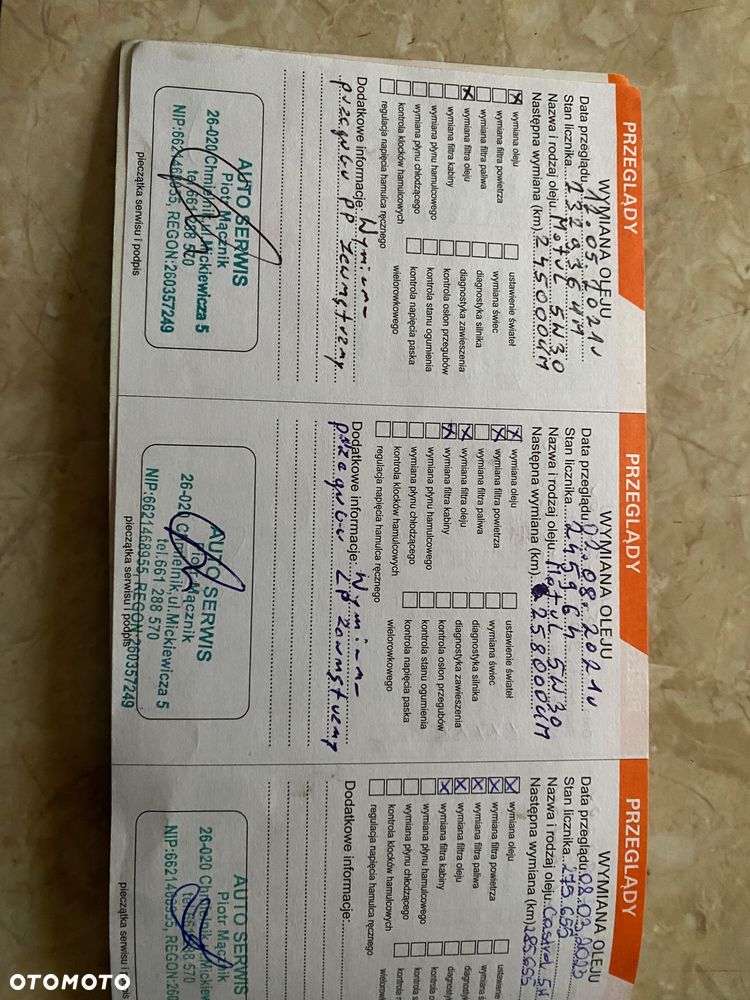 PRZEGLĄDY
WYMIANA OLEJU
Data przeglądu 17.05.2021r
Stan licznika 232936 KM
Nazwa i rodzaj oleju Motul 5W30
Następna wymiana (km) 245000KM
wymiana oleju
wymiana filtra powietrza
wymiana filtra paliwa
wymiana filtra oleju
wymiana filtra kabiny
wymiana płynu hamulcowego
wymiana płynu chłodzącego
kontrola klocków hamulcowych
regulacja napięcia hamulca ręcznego
ustawienie świateł
wymiana świec
diagnostyka silnika
diagnostyka zawieszenia
kontrol osłon przegubów
kontrola stanu ogumienia
kontrola napięcia paska
wielorowkowego
Dodatkowe informacje: Wymiana
przegubu PP zewnętrzny
AUTO SERWIS
Piotr Mącznik
26-020 Chmielnik, ul.Mickiewicza 5
tel.661 288 570
NIP:6621468955, REGON:260357249
pieczątka serwisu i podpis
PRZEGLĄDY
WYMIANA OLEJU
Data przeglądu 02.08.2021r
Stan licznika 245964
Nazwa i rodzaj oleju Motul 5W30
Następna wymiana (km) 258000KM
wymiana oleju
wymiana filtra powietrza
wymiana filtra paliwa
wymiana filtra oleju
wymiana filtra kabiny
wymiana płynu hamulcowego
wymiana płynu chłodzącego
kontrola klocków hamulcowych
regulacja napięcia hamulca ręcznego
ustawienie świateł
wymiana świec
diagnostyka silnika
diagnostyka zawieszenia
kontrol osłon przegubów
kontrola stanu ogumienia
kontrola napięcia paska
wielorowkowego
Dodatkowe informacje: Wymiana
przegubu LP zewnętrzny
AUTO SERWIS
Piotr Mącznik
26-020 Chmielnik, ul.Mickiewicza 5
tel.661 288 570
NIP:6621468955, REGON:260357249
pieczątka serwisu i podpis
PRZEGLĄDY
WYMIANA OLEJU
Data przeglądu 08.03.2023
Stan licznika 275.655
Nazwa i rodzaj oleju Castrol 5W
Następna wymiana (km) 285655
wymiana oleju
wymiana filtra powietrza
wymiana filtra paliwa
wymiana filtra oleju
wymiana filtra kabiny
wymiana płynu hamulcowego
wymiana płynu chłodzącego
kontrola klocków hamulcowych
regulacja napięcia hamulca ręcznego
ustawienie
wymiana ś
diagnosty
diagnosty
kontrol o
kontrola s
kontrola
wielorow
Dodatkowe informacje:
AUTO SERWIS
Piotr Mącznik
26-020 Chmielnik, ul.Mickiewic
288 570
NIP:6621468955, REGON:260
pieczątka serwisu i p
OTOMOTO